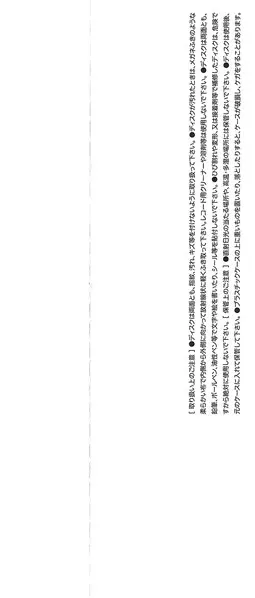 [ 取り扱い上のご注意 ] ●ディスクは両面とも、指紋、汚れ、キズ等を付けないように取り扱って下さい。●ディスクが汚れたときは、メガネふきのような
柔らかい布で内側から外側に向かって放射線状に軽くふき取って下さい。レコード用クリーナーや溶剤等は使用しないで下さい。●ディスクは両面とも、
鉛筆、ボールペン、油性ペン等で文字や絵を書いたり、シール等を貼付しないで下さい。●ひび割れや変形、又は接着剤等で補修したディスクは、危険で
すから絶対に使用しないで下さい。[ 保管上のご注意 ] ●直射日光の当たる場所や、高温・多湿の場所には保管しないで下さい。●ディスクは使用後、
元のケースに入れて保管して下さい。●プラスチックケースの上に重いものを置いたり、落としたりすると、ケースが破損し、ケガをすることがあります。